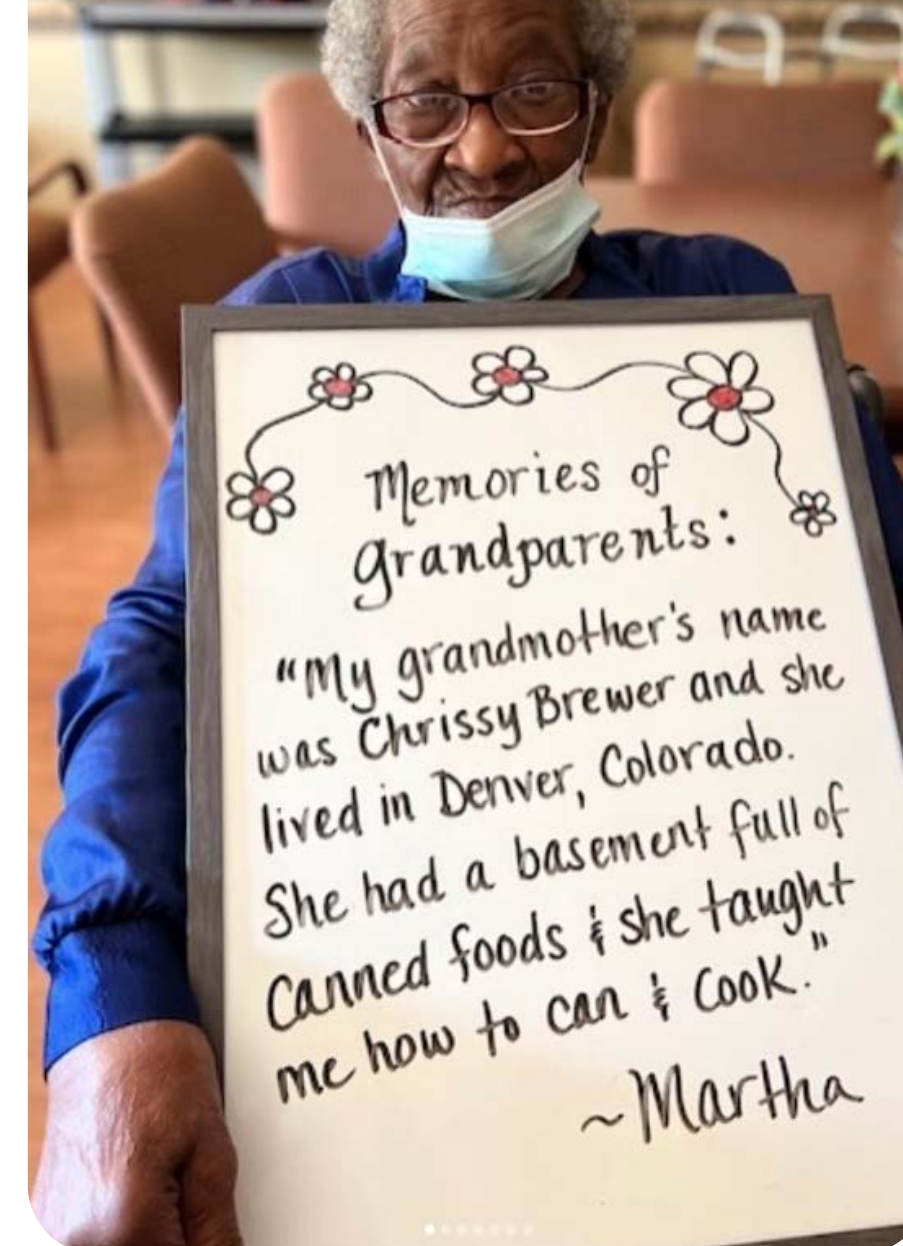 Memories of
grandparents:
"My grandmother's name
was Chrissy Brewer and she
lived in Denver, Colorado.
She had a basement full of
canned foods & she taught
me how to can & cook."
~Martha